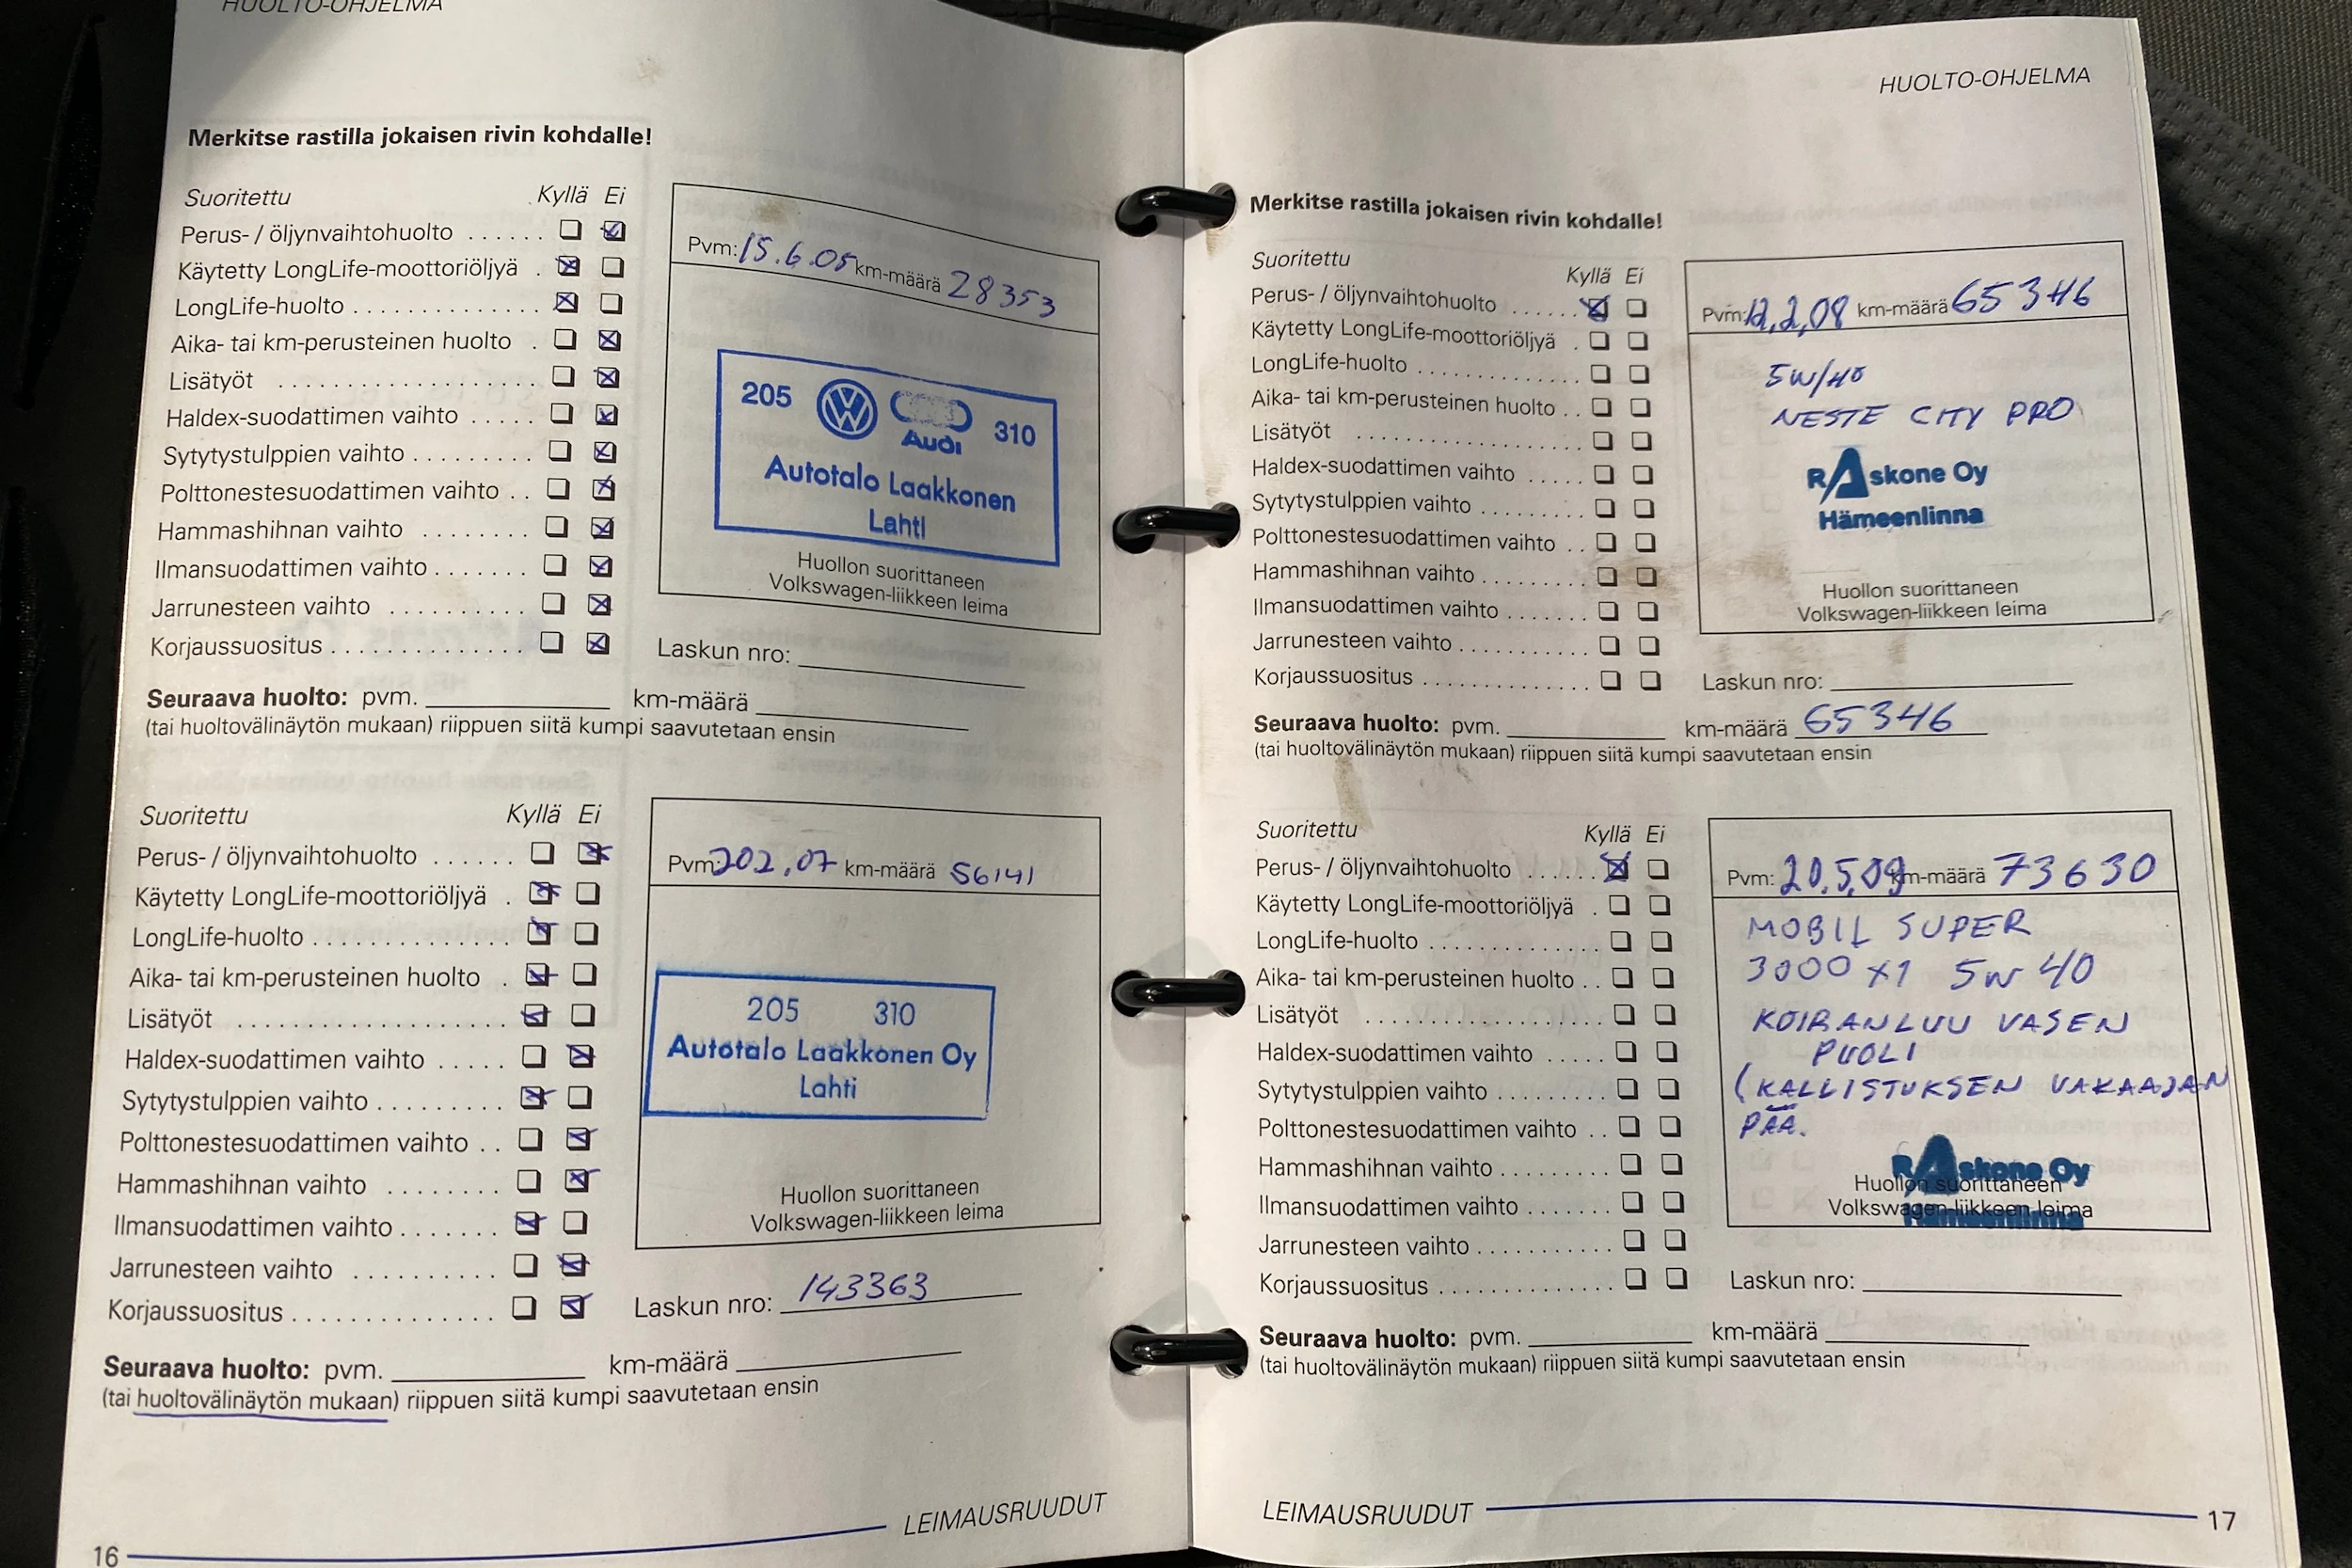 HUOLTO-OHJELMA
Merkitse rastilla jokaisen rivin kohdalle!
Suoritettu Kyllä Ei
Perus- / öljynvaihtohuolto ......
Käytetty LongLife-moottoriöljyä .
LongLife-huolto ..............
Aika- tai km-perusteinen huolto .
Lisätyöt ...................
Haldex-suodattimen vaihto .....
Sytytystulppien vaihto .........
Polttonestesuodattimen vaihto ..
Hammashihnan vaihto ........
Ilmansuodattimen vaihto .......
Jarrunesteen vaihto ..........
Korjaussuositus ..............
Pvm: 15.6.05 km-määrä 28353
205 310
Audi
Autotalo Laakkonen
Lahti
Huollon suorittaneen
Volkswagen-liikkeen leima
Laskun nro:
Seuraava huolto: pvm. km-määrä
(tai huoltovälinäytön mukaan) riippuen siitä kumpi saavutetaan ensin
Suoritettu Kyllä Ei
Perus- / öljynvaihtohuolto ......
Käytetty LongLife-moottoriöljyä .
LongLife-huolto ..............
Aika- tai km-perusteinen huolto .
Lisätyöt ...................
Haldex-suodattimen vaihto .....
Sytytystulppien vaihto .........
Polttonestesuodattimen vaihto ..
Hammashihnan vaihto ........
Ilmansuodattimen vaihto .......
Jarrunesteen vaihto ..........
Korjaussuositus ..............
Pvm: 202.07 km-määrä 56141
205 310
Autotalo Laakkonen Oy
Lahti
Huollon suorittaneen
Volkswagen-liikkeen leima
Laskun nro: 143363
Seuraava huolto: pvm. km-määrä
(tai huoltovälinäytön mukaan) riippuen siitä kumpi saavutetaan ensin
LEIMAUSRUUDUT
16
HUOLTO-OHJELMA
Merkitse rastilla jokaisen rivin kohdalle!
Suoritettu Kyllä Ei
Perus- / öljynvaihtohuolto ......
Käytetty LongLife-moottoriöljyä .
LongLife-huolto ..............
Aika- tai km-perusteinen huolto ..
Lisätyöt ...................
Haldex-suodattimen vaihto .....
Sytytystulppien vaihto .........
Polttonestesuodattimen vaihto ..
Hammashihnan vaihto .........
Ilmansuodattimen vaihto .......
Jarrunesteen vaihto ...........
Korjaussuositus ..............
Pvm: 12.2.08 km-määrä 65346
5W/40
NESTE CITY PRO
RAskone Oy
Hämeenlinna
Huollon suorittaneen
Volkswagen-liikkeen leima
Laskun nro:
Seuraava huolto: pvm. km-määrä 65346
(tai huoltovälinäytön mukaan) riippuen siitä kumpi saavutetaan ensin
Suoritettu Kyllä Ei
Perus- / öljynvaihtohuolto ......
Käytetty LongLife-moottoriöljyä .
LongLife-huolto ..............
Aika- tai km-perusteinen huolto ..
Lisätyöt ...................
Haldex-suodattimen vaihto .....
Sytytystulppien vaihto .........
Polttonestesuodattimen vaihto ..
Hammashihnan vaihto .........
Ilmansuodattimen vaihto .......
Jarrunesteen vaihto ...........
Korjaussuositus ..............
Pvm: 20.5.09 km-määrä 73630
MOBIL SUPER
3000 X1 5W 40
KOIRANLUU VASEN
PUOLI
(KALLISTUKSEN VAKAAJAN
PÄÄ.
RAskone Oy
Hämeenlinna
Huollon suorittaneen
Volkswagen-liikkeen leima
Laskun nro:
Seuraava huolto: pvm. km-määrä
(tai huoltovälinäytön mukaan) riippuen siitä kumpi saavutetaan ensin
LEIMAUSRUUDUT
17